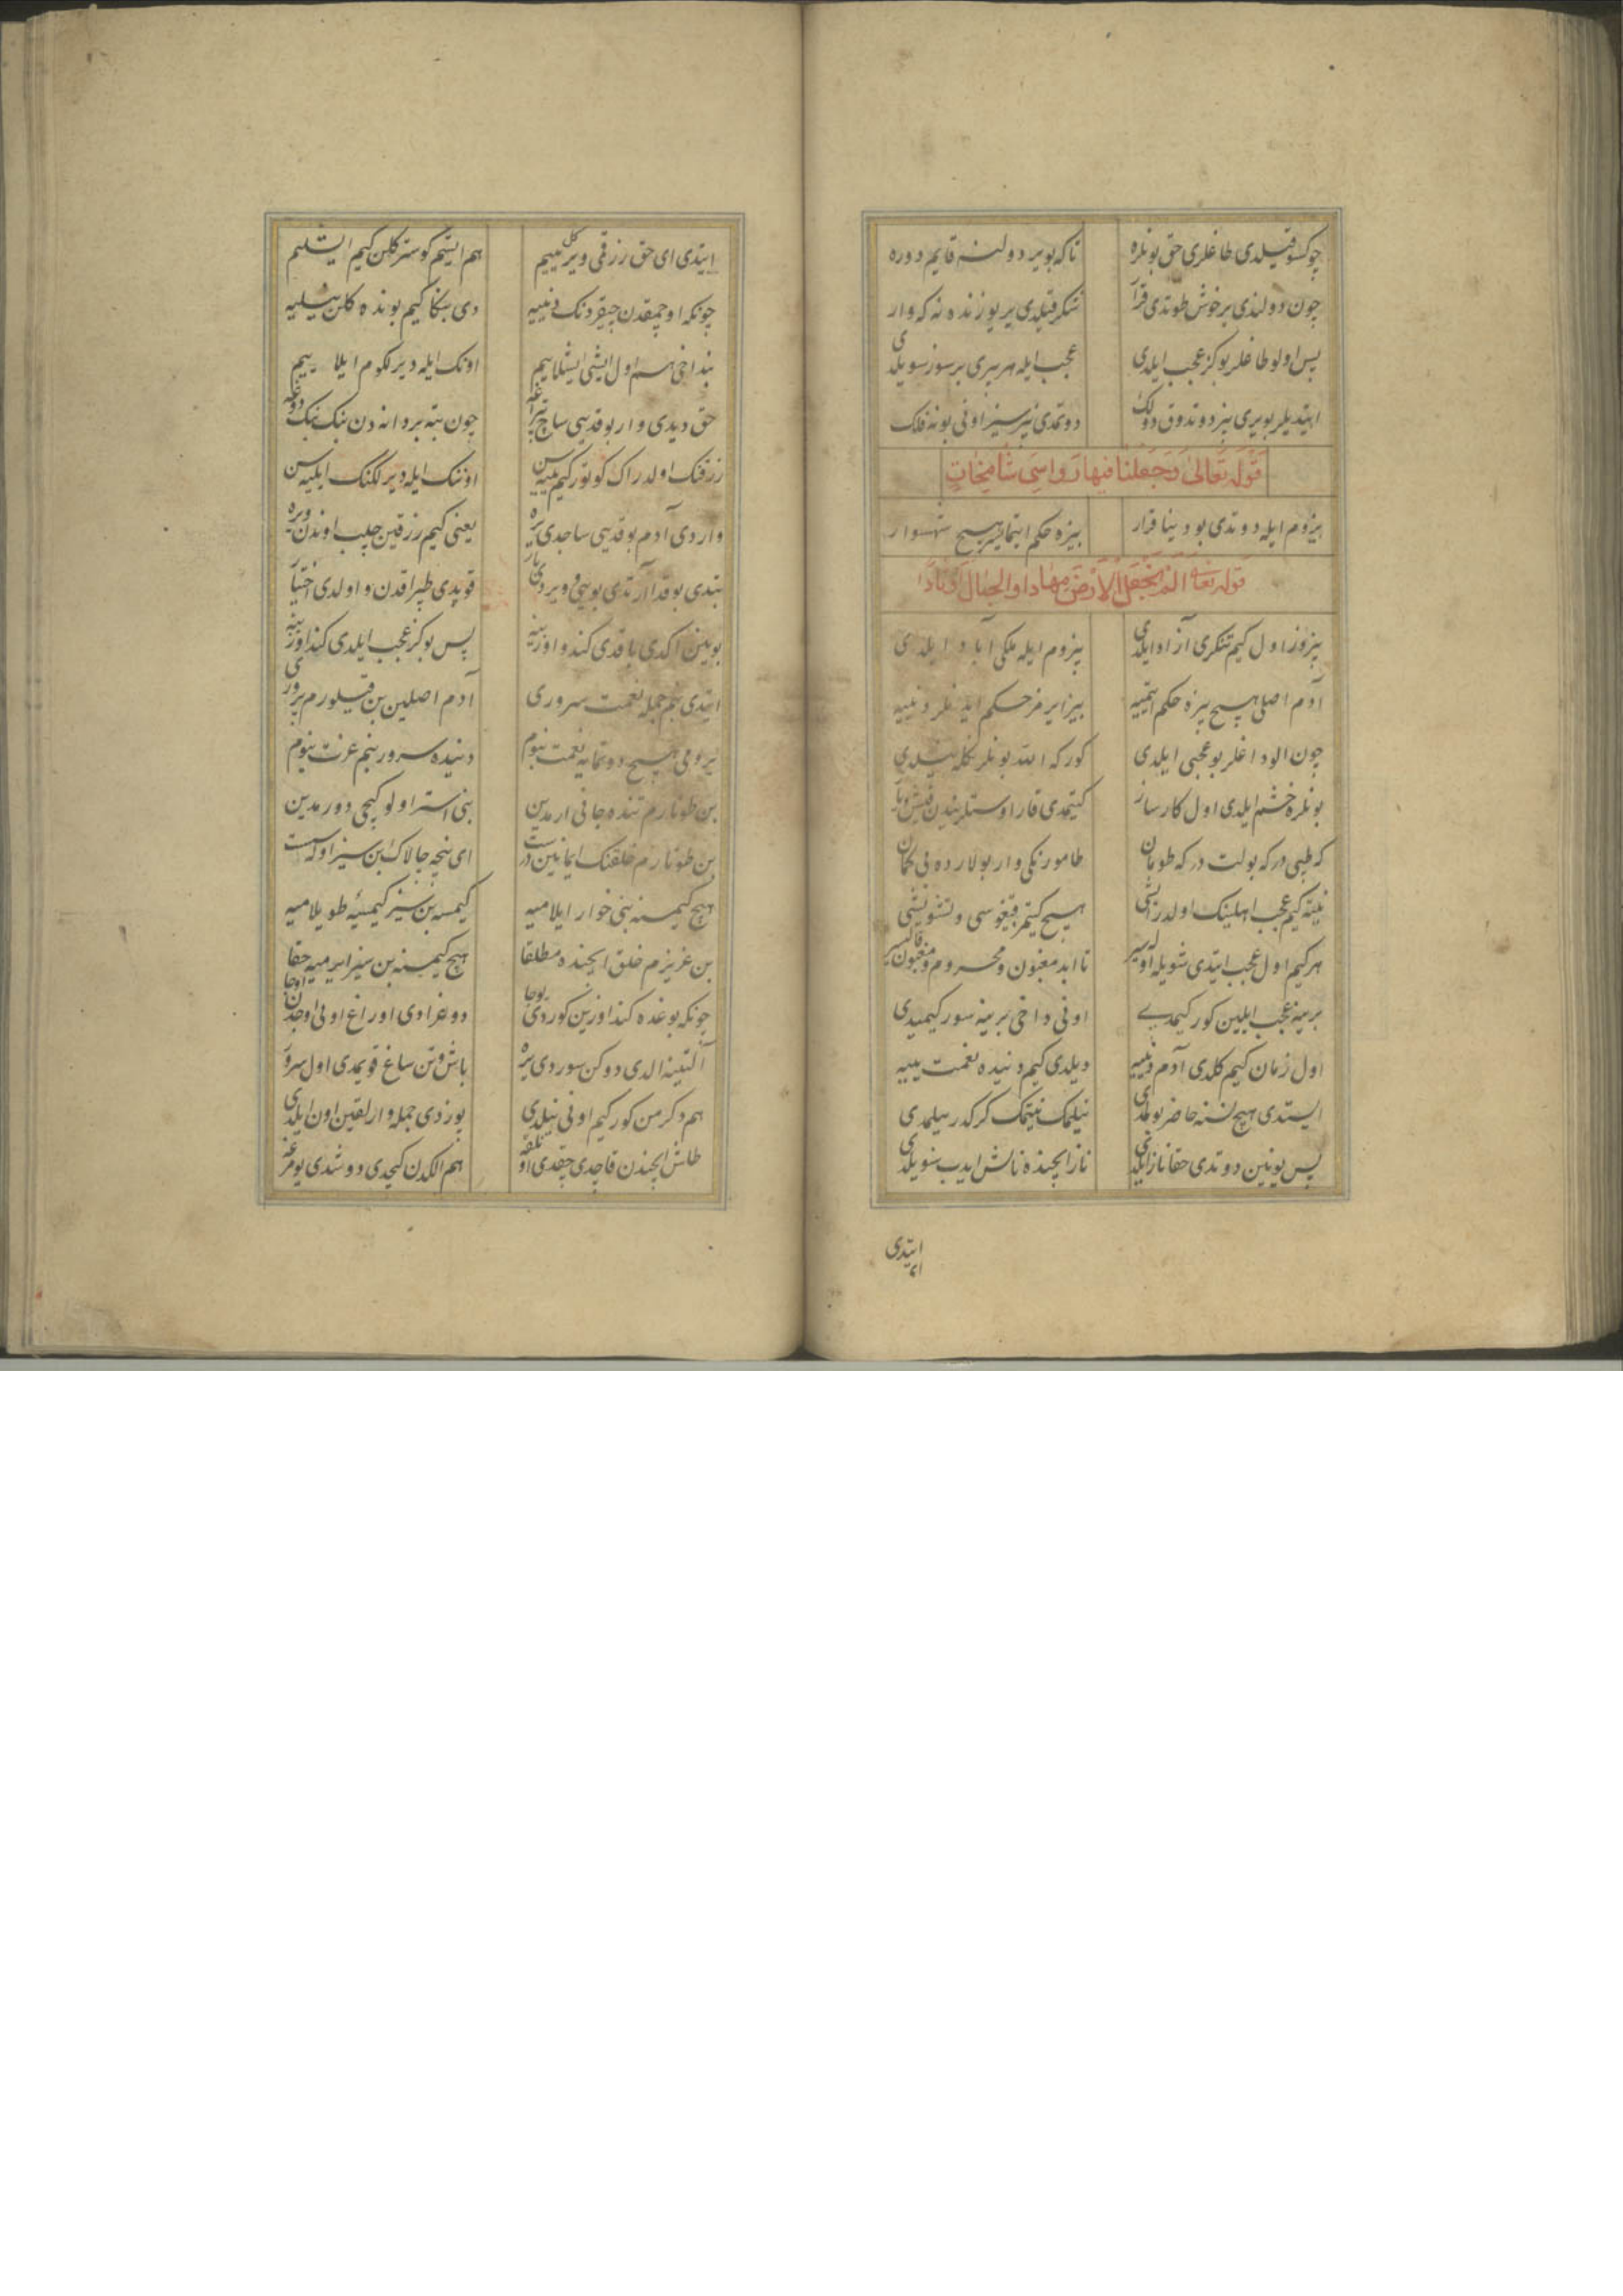 چوکسو قیلدی طاغلری حق بونلره تا که بو یر دولنه قایم دوره
چون دولندی یر خوش طوتدی قرار شکر قیلدی یر یوزنده نه که وار
پس اولو طاغلر بو کز عجب ایلدی عجب ایله هر بری بر سوز سویلدی
ایتدیلر بو یری بز دوتدوق دولک دوتمدی بزسیز اونی بو نه فلک
قوله تعالی وجعلنا فیها رواسی شامخات
بیزوم ایله دوتدی بو دنیا قرار بیزه حکم ایتمایسر هیچ شهسوار
قوله تعالی الم نجعل الارض مهادا والجبال اوتادا
بیزوز اول کیم تنکری آزاد ایلدی بیزوم ایله ملکی آباد ایلدی
آدم اصلی هیچ بیزه حکم ایتمیه بیز ایرمز حکم
چون الو داغلر بو عجبی ایلدی کور که الله بونلره نیلدی
بونلره خشم ایلدی اول کارساز کیتمدی قار اوستلریندن قیش و یاز
که طپی در که بولت در که طومان طامو رنکی وار بولارده بی کمان
نیته کیم عجب اهلینک اولدر ایشی هیچ کیتمز قیغوسی و تشویشی
هر کیم اول عجب ایتدی شویله اولیسر تا ابد مغبون و محروم و قالیسر
برینه عجب ایلین کور کیمدی اونی داخی برینه سور کیمیدی
اول زمان کیم کلدی آدم دنییه دیلدی کیم دنیده نعمت ییه
ایستدی هیچ نسنه حاضر بولمدی نیلمک نیتمک کرکدر بیلمدی
پس یونین دوتدی حقا ناز ایلدی ناز ایچنده نالش ایدب سویلدی
ایتدی
ایتدی ای حق رزقی ویر کل ییم هم ایشم کوستر کلن کیم ایشلیم
چونکه اوچمقدن چیقردنک دنییه دی بنکا کیم بونده کلن نیلیه
بنداخی هم اول ایشی ایشلاییم اونک ایله دیرلکوم ایلاییم
حق دیدی وار بوقدیی ساچ تپراغه چون بته بر دانه دن بنک بنک دوغه
رزقنک اولدر اک کوتور کیم ییه سن اوننک ایله دیرلکنک ایلیه سن
واردی آدم بوقدیی ساجدی یره یعنی کیم رزقین چلب اوندن ویره
بتدی بوقدا آرتدی بویی ویردی بار قویدی طپراقدن و اولدی اختیار
بوینن اکدی باقدی کندو اوزینه پس بو کز عجب ایلدی کند اوزینه
ایتدی بنم جمله نعمت سروری آدم اصلین بن قیلورم پروری
یرومی هیچ دوتمایه نعمت بنوم دنیده سرور بنم عزت بنوم
بن طوتارم تنده جانی ارمدین بنی استر اولو کیچی دورمدین
بن طوتارم خلقنک ایمانین درست ای نیجه چالاک بن سیز اوله سست
هیچ کیمسنه بنی خوار ایلامیه کیمسه بن سیز کیمسیه طویلامیه
بن عزیزم خلق ایچنده مطلقا هیچ کیمسنه بن سیز ایرمیه حقا
چونکه بوغده کند اوزین کوردی یوجا دوغرادی اوراغ اونی اوجدن اوجا
آلتینه الدی دوکن سوردی یره باش و تن ساغ قویمدی اول سرور
هم دکرمن کور کیم اونی نیلدی بوزدی جمله وارلقین اون ایلدی
طاش ایچندن قاچدی چقدی اول هم الکدن کیجدی دوشدی یومرغه